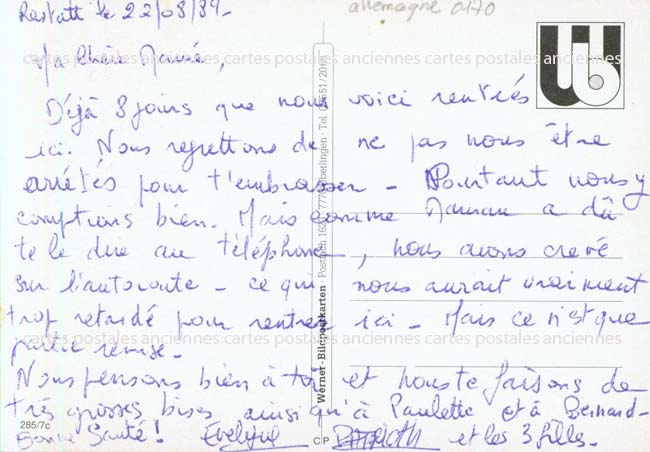 Rastatt le 22/08/89-
allemagne 0170
cartes postales anciennes cartes postales anciennes cartes postales anciennes
Ma Chère
Déjà 8 jours que nous voici rentrés
ici. Nous regrettons de ne pas nous être
arrêtés pour t'embrasser - Pourtant nous y
comptions bien. Mais comme Maman a dû
te le dire au téléphone, nous avons crevé
sur l'autoroute - ce qui nous aurait vraiment
trop retardé pour rentrer ici - Mais ce n'est que
partie remise -
Nous pensons bien à toi et nous te faisons de
très grosses bises ainsi qu'à Paulette et à Bernard-
Bonne Santé! Evelyne et les 3 filles.
cartes postales anciennes cartes postales anciennes cartes postales anciennes
Wernet-Bildpostkarten · Postfach
285/7c
C P